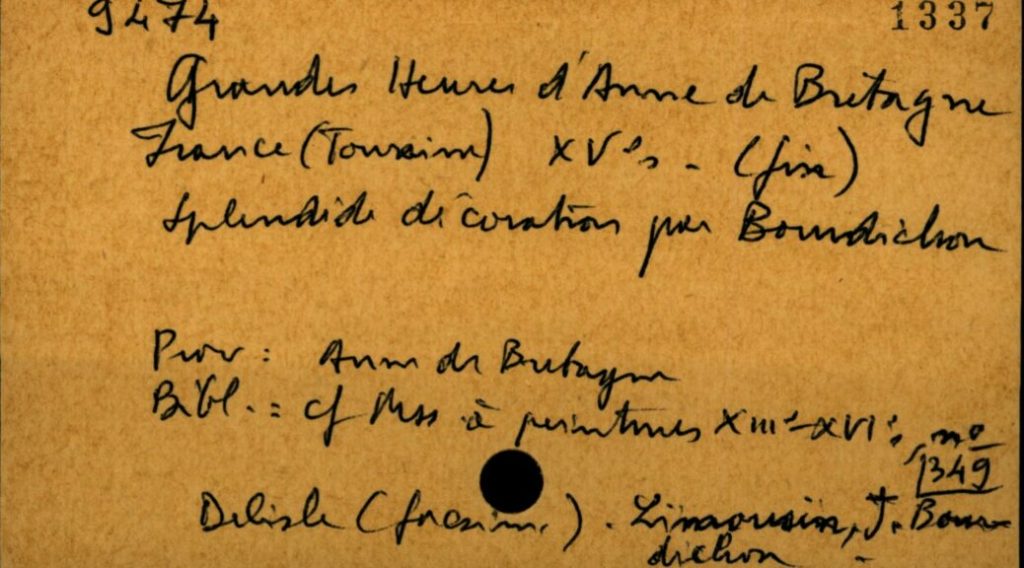 9474 1337
Grandes Heures d'Anne de Bretagne
France (Touraine) XVe s - (fin)
Splendide décoration par Bourdichon
Prov : Anne de Bretagne
Bibl. : cf Mss à peintures XIIIe-XVIe s, no
1349
Delisle (facsim.). Limousin, J. Bour-
dichon